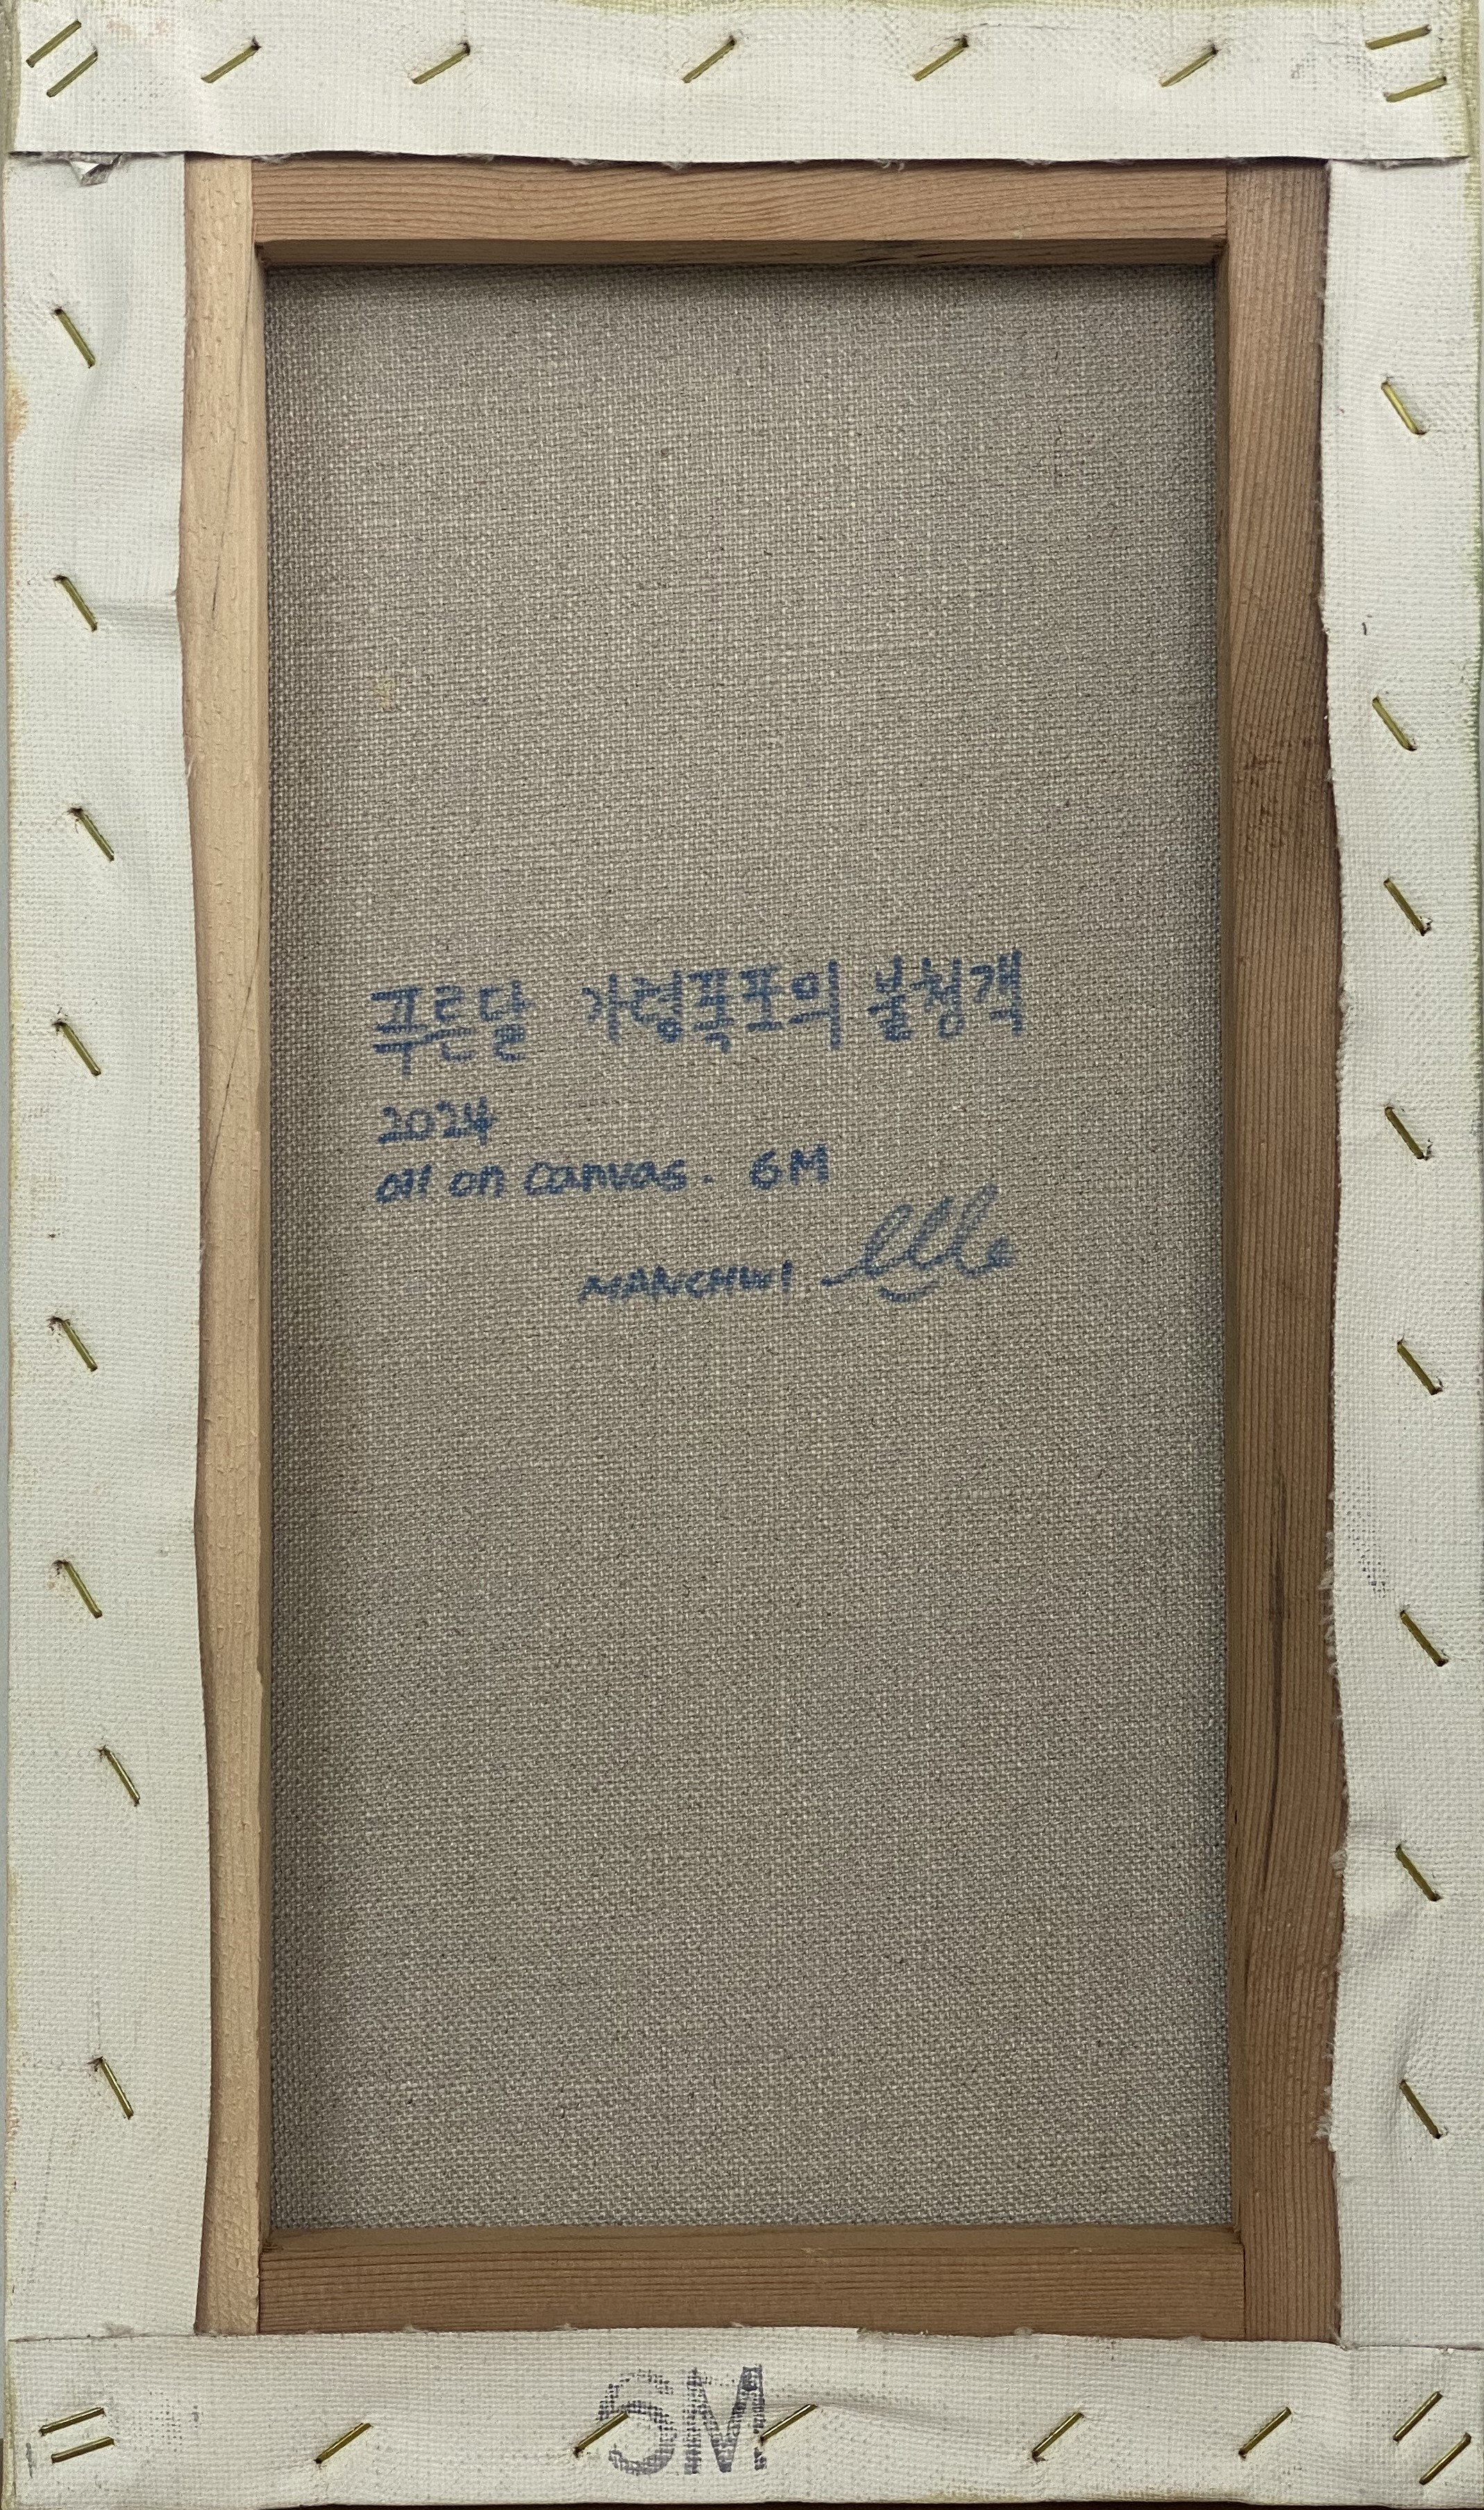 푸른달 가령폭포의 불청객
2024
oil on canvas. 6M
MANCHWI
6M